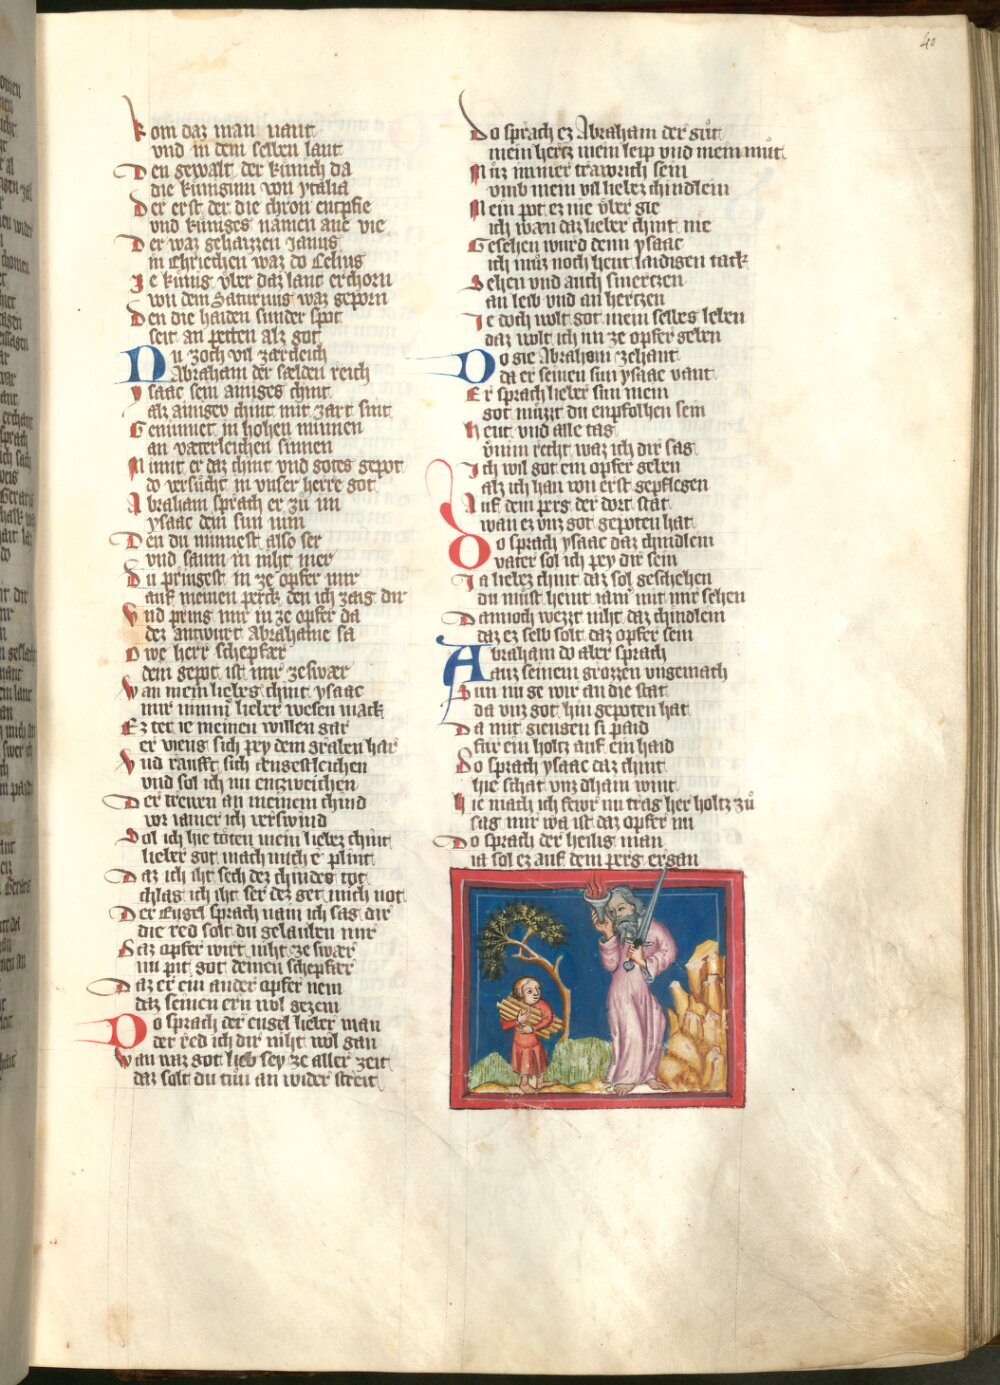 40
kom daz man nant
vnd in dem selben lant
Den gewalt der kűnich da
die kűniginn von ytalia
Der erst der die chron enpfie
vnd kűniges namen ane vie
Der waz gehaizzen Ianus
in Chriechen waz do Celius
Ze kűnig vber daz lant erchorn
von dem Saturnus waz geporn
Den die haiden sunder spot
seit an petten alz got
Nu zoch vil zærtleich
Abraham der sælden reich
ysaac sein ainiges chint
alz ainigev chint mit zart sint
Geminnet in hohen minnen
an væterleichen sinnen
Minnt er daz chint vnd gotes gepot
do versucht in vnser herre got
Abraham sprach er zů im
ysaac dein sun nim
Den du minnest also ser
vnd saum in niht mer
Du pringest in ze opfer mir
auf meinen perck den ich zaig dir
Vnd pring mir in ze opfer da
dez antwurt Abrahame sa
Owe herr schepfær
dein gepit ist mir ze swær
Wan mein liebes chint ysaac
mir nimmer lieber wesen mack
Ez tet ie meinen willen gar
er vieng sich pey dem graben har
Vnd raufft sich ængestleichen
vnd sol ich nu entzweichen
Der trewen an meinem chind
vor iamer ich verswind
Sol ich hie töten mein liebez chint
lieber got mach mich e plint
Daz ich iht sech dez chindes tot
chlag ich iht ser dez get mich not
Der Engel sprach nain ich sag dir
die red solt du gelauben mir
Daz opfer wirt niht ze swær
nu pit got deinen schepfær
Daz er ein ander opfer nem
daz seinen ern wol gezem
Do sprach der engel lieber man
der red ich dir niht wol gan
Wan waz got lieb sey ze aller zeit
daz solt du tůn an wider streit
Do sprach ez Abraham der gůt
mein hertz mein leip vnd mein můt
Můz immer trawrich sein
vmb mein vil liebez chindlein
Mein pot ez nie vber gie
ich wæn daz lieber chint nie
Gesehen wurd denn ysaac
ich můz noch heut laidigen tack
Sehen vnd auch smertzen
an leib vnd an hertzen
Ie doch wolt got mein selbes leben
daz wolt ich im ze opfer geben
Do gie Abraham zehant
da er seinen sun ysaac vant
Er sprach lieber sun mein
got můzzt du enpfolhen sein
Heut vnd alle tag
vernim recht waz ich dir sag
Ich wil got ein opfer geben
alz ich han von erst gepflegen
Auf dem perg der dort stat
wan ez vnz got gepoten hat
Do sprach ysaac daz chindlein
vater sol ich pey dir sein
Ja liebez chint daz sol geschehen
du můst heint iam' mit mir sehen
Dannoch wezzt niht daz chindlein
daz ez selb solt daz opfer sein
Abraham do aber sprach
auz seinem grozzen vngemach
Sun nu ge wir an die stat
da vnz got hin gepoten hat
Da mit giengen si paid
fűr ein holtz auf ein haid
Do sprach ysaac daz chint
hie schat vnz dhain wint
Hie mach ich fewr nu trag her holtz zů
sag mir wa ist daz opfer nu
Do sprach der heilig man
ia sol ez auf dem perg ergan